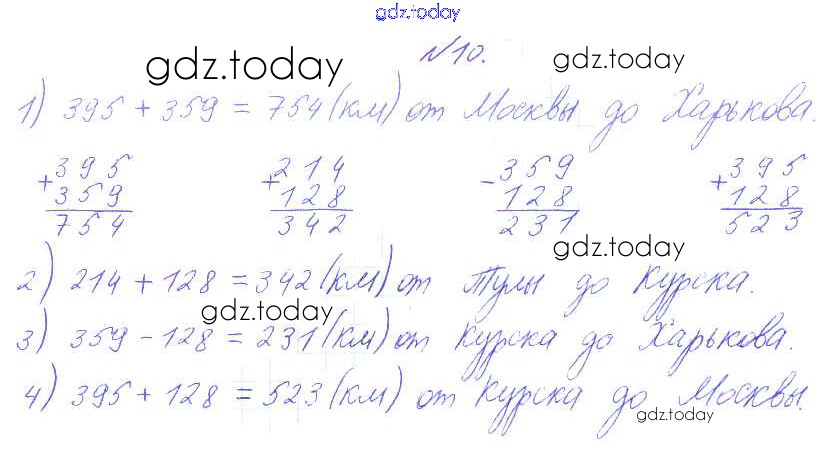 gdz.today
№10.
gdz.today
gdz.today
1) 395 + 359 = 754 (км) от Москвы до Харькова.
+395 359 754
+214 128 342
-359 128 231
+395 128 523
gdz.today
2) 214 + 128 = 342 (км) от Тулы до Курска.
gdz.today
3) 359 - 128 = 231 (км) от Курска до Харькова.
4) 395 + 128 = 523 (км) от Курска до Москвы.
gdz.today